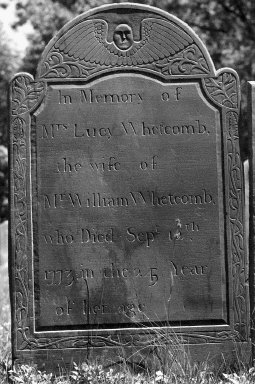 In Memory of
Mrs Lucy Whetcomb.
the wife of
Mr. William Whetcomb.
who Died Sept 12th
1773 in the 25 Year
of her age